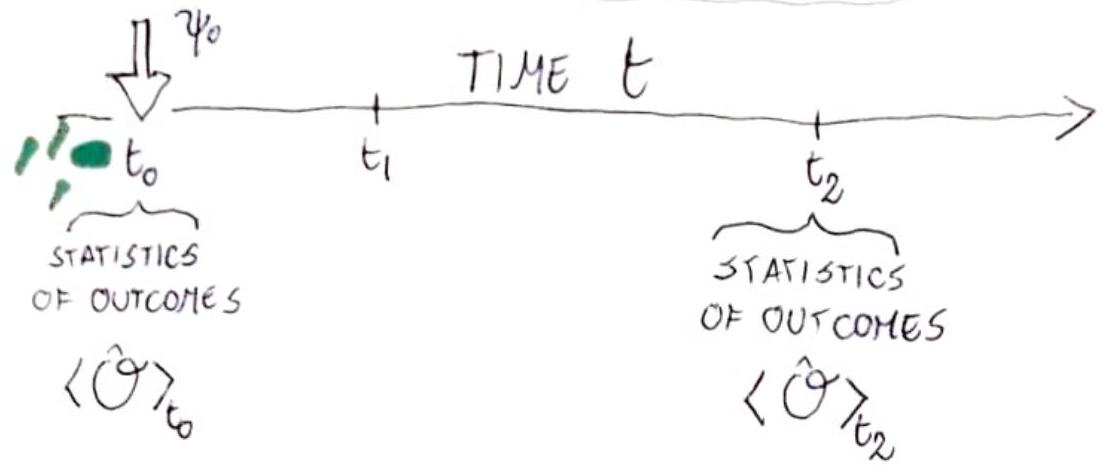 ψ₀
TIME t
t₀
t₁
t₂
STATISTICS
OF OUTCOMES
⟨Ô⟩t₀
STATISTICS
OF OUTCOMES
⟨Ô⟩t₂